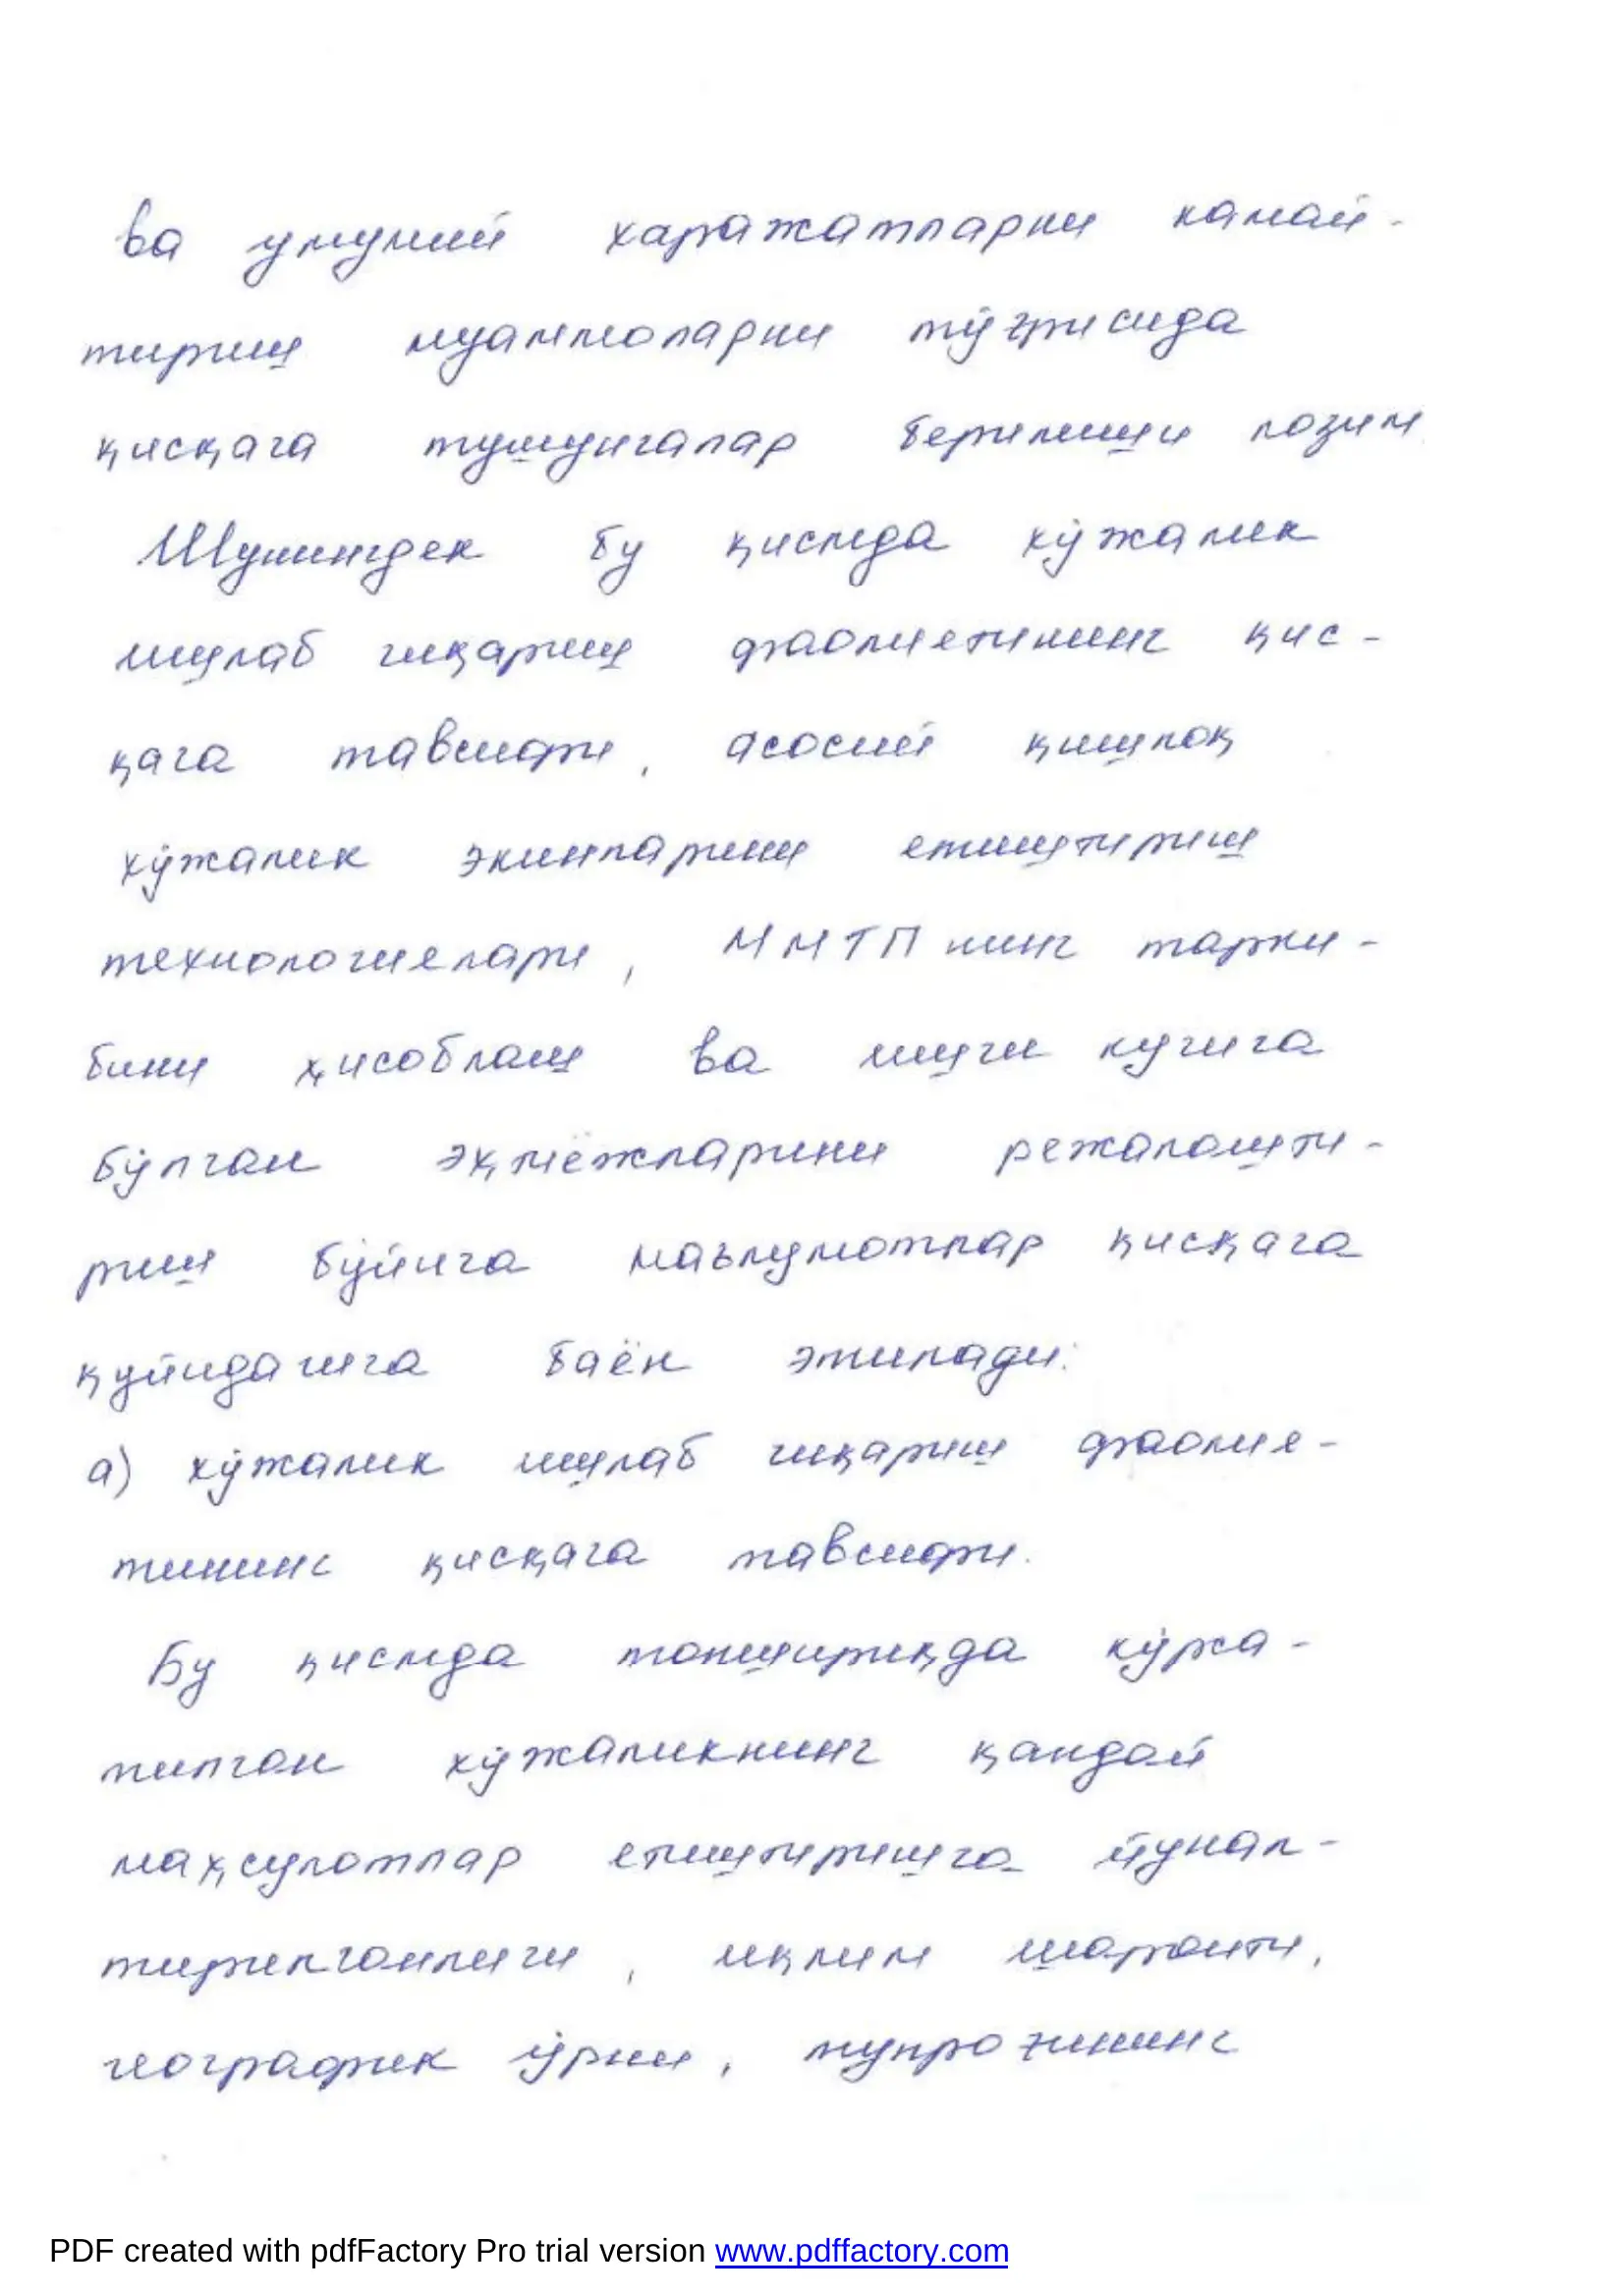 ва умумий харажатларни камай-
тириш муаммоларни тўғрисида
қисқача тушунчалар берилиши лозим
Шунингдек бу қисмда хўжалик
ишлаб чиқариш фаолиетининг қис-
қача тавсифи, асосий қишлоқ
хўжалик экинларини етиштириш
технологиелари, ММТП нинг тарки-
бини ҳисоблаш ва ишчи кучига
бўлган эҳтиёжларини режалошти-
риш бўйича маълумотлар қисқача
қуйидагича баён этилади:
а) хўжалик ишлаб чиқариш фаолие-
тининг қисқача тавсифи.
Бу қисмда топшириқда кўрса-
тилган хўжаликнинг қандай
маҳсулотлар етиштиришга йунал-
тирилганлиги, иқлим шароити,
географик ўрни, тупроғининг
PDF created with pdfFactory Pro trial version www.pdffactory.com